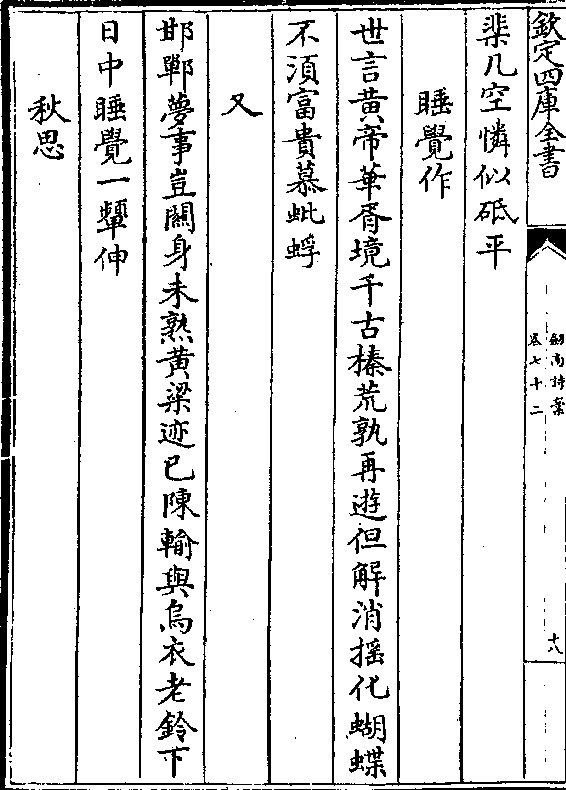 欽定四庫全書
劍南詩藁
卷七十二
十八
棐几空憐似砥平
睡覺作
世言黄帝華胥境千古榛荒孰再遊但解消摇化蝴蝶
不須富貴慕蚍蜉
又
邯鄲夢事豈關身未熟黄粱迹已陳輸與烏衣老鈴下
日中睡覺一嚬伸
秋思